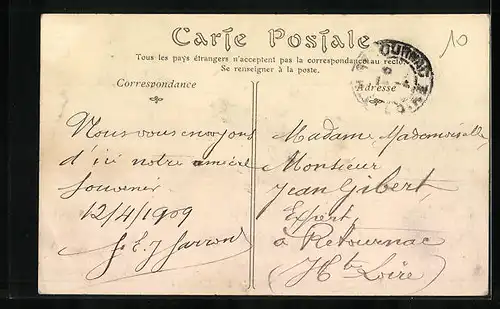 Carte Postale
Tous les pays étrangers n'acceptent pas la correspondance au recto.
Se renseigner à la poste.
Correspondance
Adresse
10
Nous vous envoyons
d'ici notre amical
Souvenir
12/4/1909
Madame, Mademoiselle,
Monsieur
Jean Gibert,
Expert,
à Retournac
(Hte Loire)